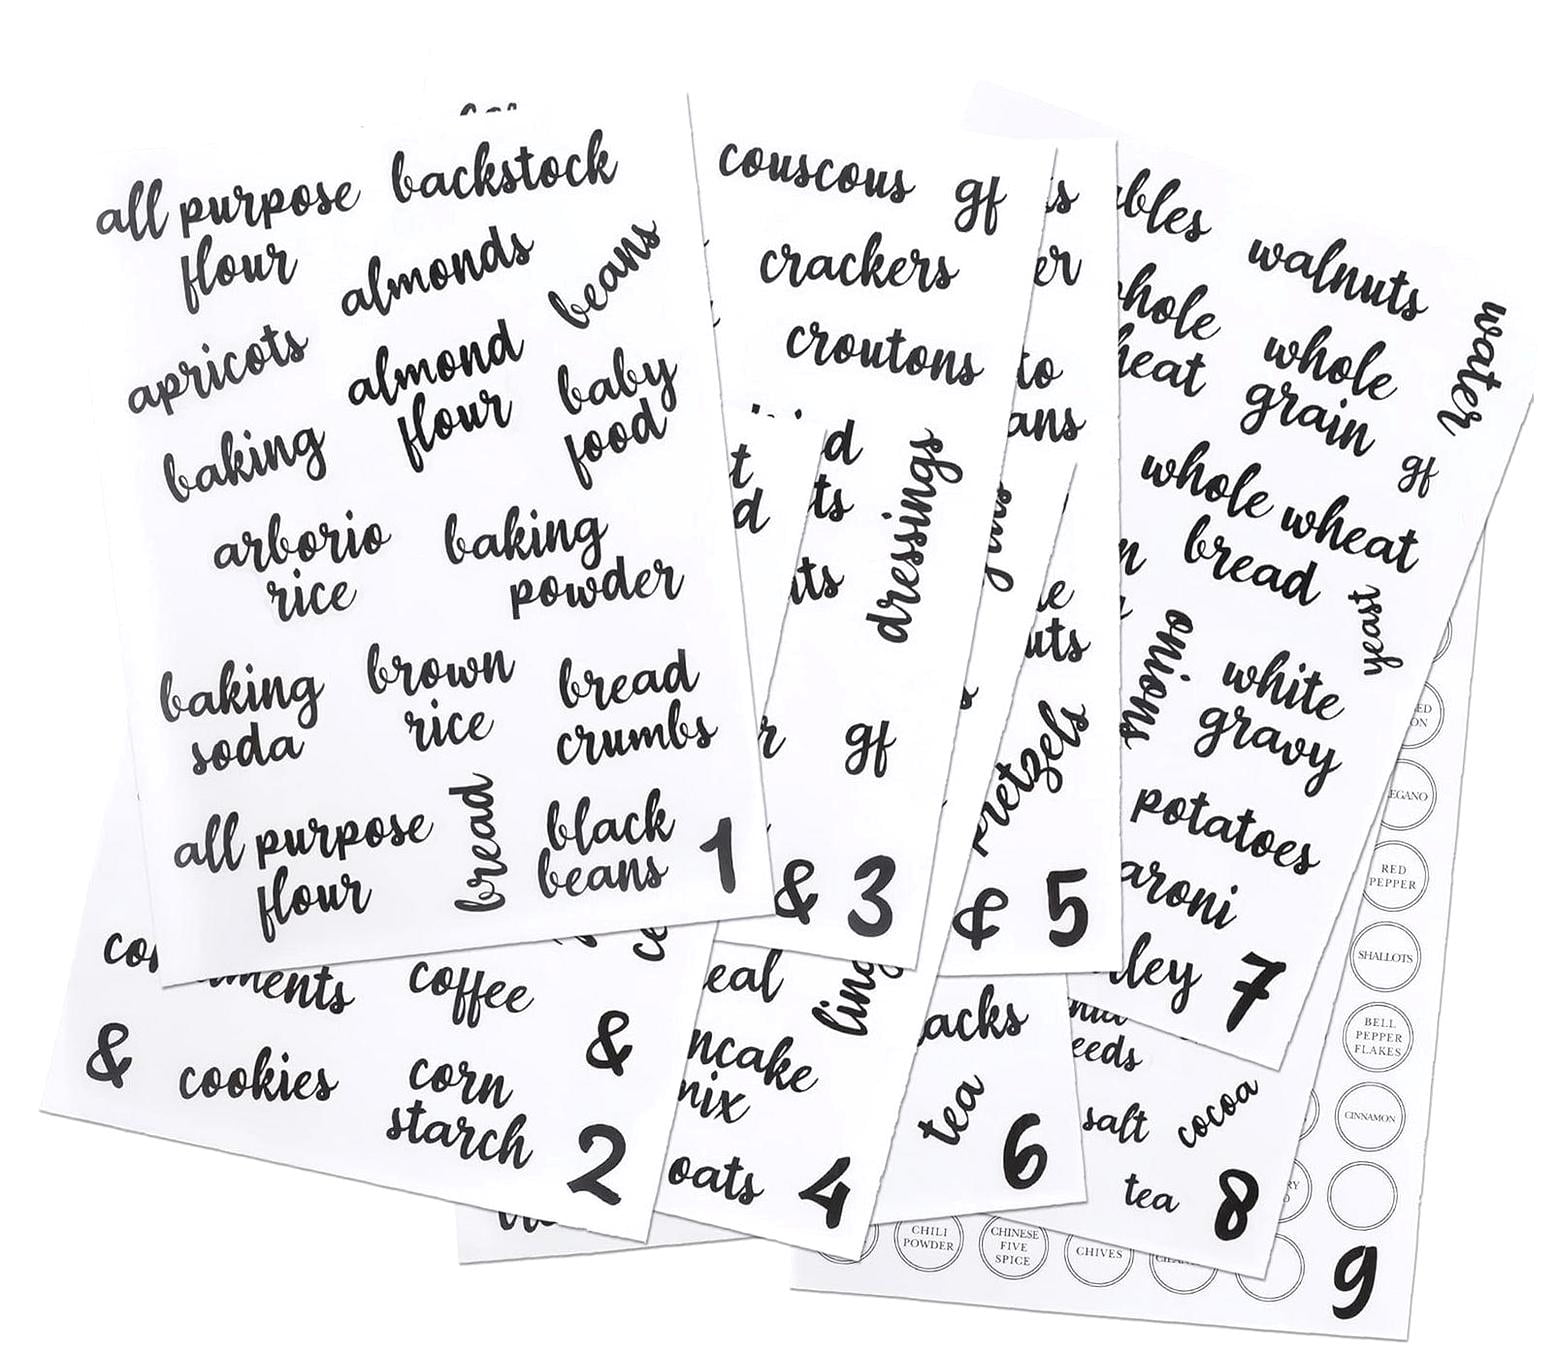 all purpose
flour
backstock
almonds
beans
apricots
almond
flour
baby
food
baking
arborio
rice
baking
powder
baking
soda
brown
rice
bread
crumbs
all purpose
flour
bread
black
beans
1
coffee
&
&
cookies
corn
starch
2
couscous
gf
crackers
croutons
dressings
gf
& 3
oats
4
pretzels
& 5
tea
6
walnuts
water
whole
grain
gf
whole wheat
bread
yeast
onions
white
gravy
potatoes
7
salt
cocoa
tea
8
RED
PEPPER
SHALLOTS
BELL
PEPPER
FLAKES
CINNAMON
CHILI
POWDER
CHINESE
FIVE
SPICE
CHIVES
9